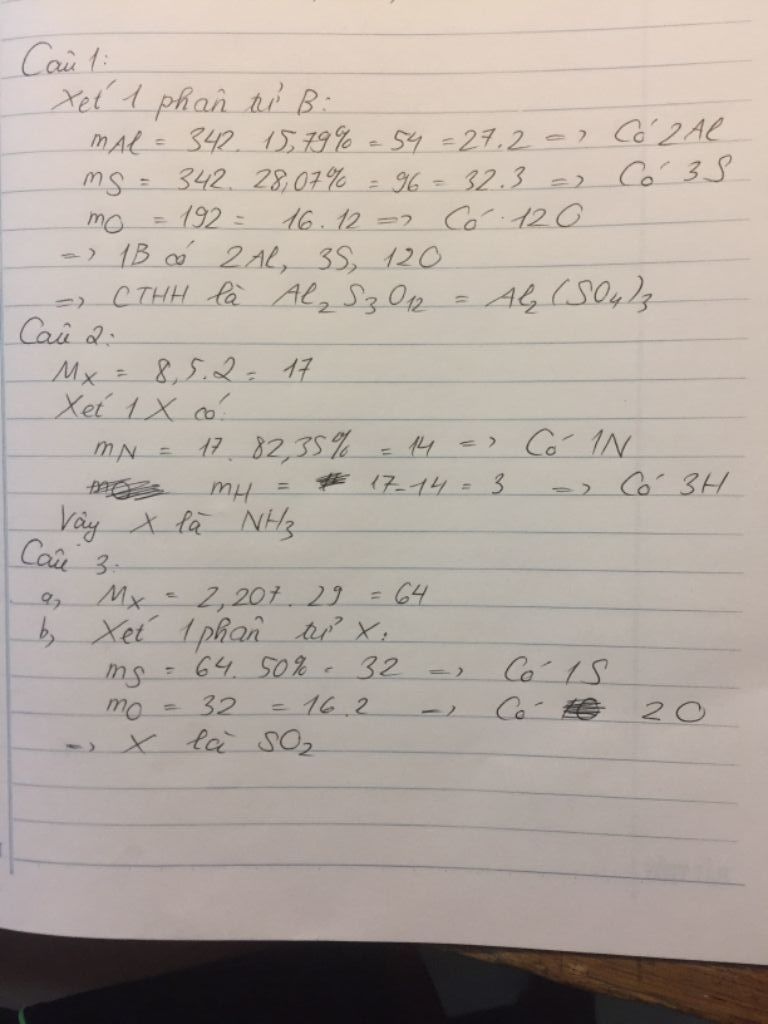 Câu 1:
Xét 1 phân tử B:
mAl = 342. 15,79% = 54 = 27.2 => Có 2Al
mS = 342. 28,07% = 96 = 32.3 => Có 3S
mO = 192 = 16.12 => Có 12O
=> 1B có 2Al, 3S, 12O
=> CTHH là Al₂S₃O₁₂ = Al₂(SO₄)₃
Câu 2:
Mx = 8,5.2 = 17
Xét 1 X có:
mN = 17. 82,35% = 14 => Có 1N
mH = 17-14 = 3 => Có 3H
Vậy X là NH₃
Câu 3:
a, Mx = 2,207.29 = 64
b, Xét 1 phân tử X:
mS = 64. 50% = 32 => Có 1S
mO = 32 = 16.2 => Có 2O
=> X là SO₂